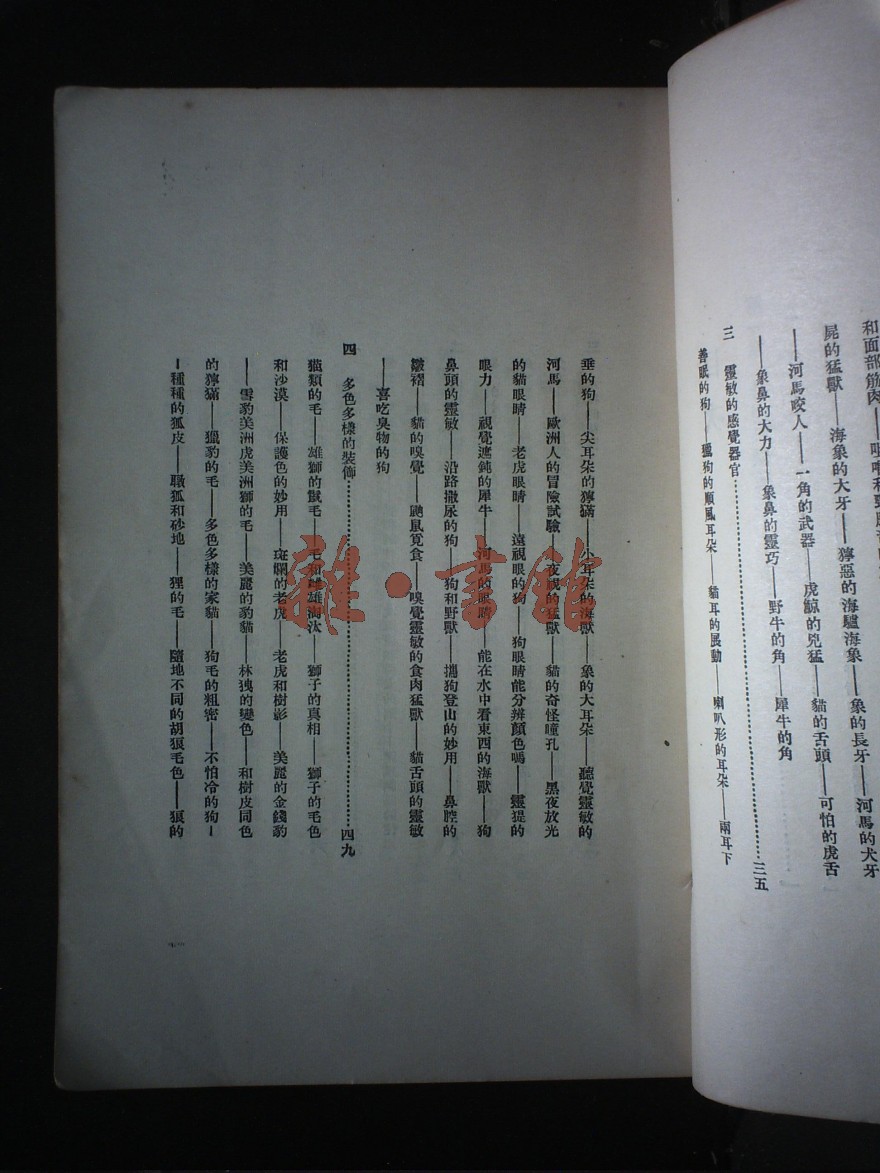 和面部筋肉
屍的猛獸——海象的大牙——獰惡的海驢海象——象的長牙——河馬的犬牙
——河馬咬人——一角的武器——虎鯨的兇猛——貓的舌頭——可怕的虎舌
——象鼻的大力——象鼻的靈巧——野牛的角——犀牛的角
三　靈敏的感覺器官…………三五
善眠的狗——獵狗的順風耳朵——貓耳的展動——喇叭形的耳朵——兩耳下
垂的狗——尖耳朵的獰㺔——小耳朵的海獸——象的大耳朵——聽覺靈敏的
河馬——歐洲人的冒險試驗——夜眼的猛獸——貓的奇怪瞳孔——黑夜放光
的貓眼睛——老虎眼睛——遠視眼的狗——狗眼睛能分辨顏色嗎——靈𤟥的
眼力——視覺遲鈍的犀牛——河馬的眼睛——能在水中看東西的海獸——狗
鼻頭的靈敏——沿路撒尿的狗——狗和野獸——攜狗登山的妙用——鼻腔的
皺褶——貓的嗅覺——鼬鼠覓食——嗅覺靈敏的食肉猛獸——貓舌頭的靈敏
——喜吃臭物的狗
四　多色多樣的裝飾…………四九
貓類的毛——雄獅的鬣毛——毛和雌雄淘汰——獅子的真相——獅子的毛色
和沙漠——保護色的妙用——斑斕的老虎——老虎和樹影——美麗的金錢豹
——雪豹美洲虎美洲獅的毛——美麗的豹貓——林㹭的變色——和樹皮同色
的獰㺔——獵豹的毛——多色多樣的家貓——狗毛的粗密——不怕冷的狗—
—種種的狐皮——𤡬狐和砂地——狸的毛——隨地不同的胡狼毛色——狼的
雜·書館